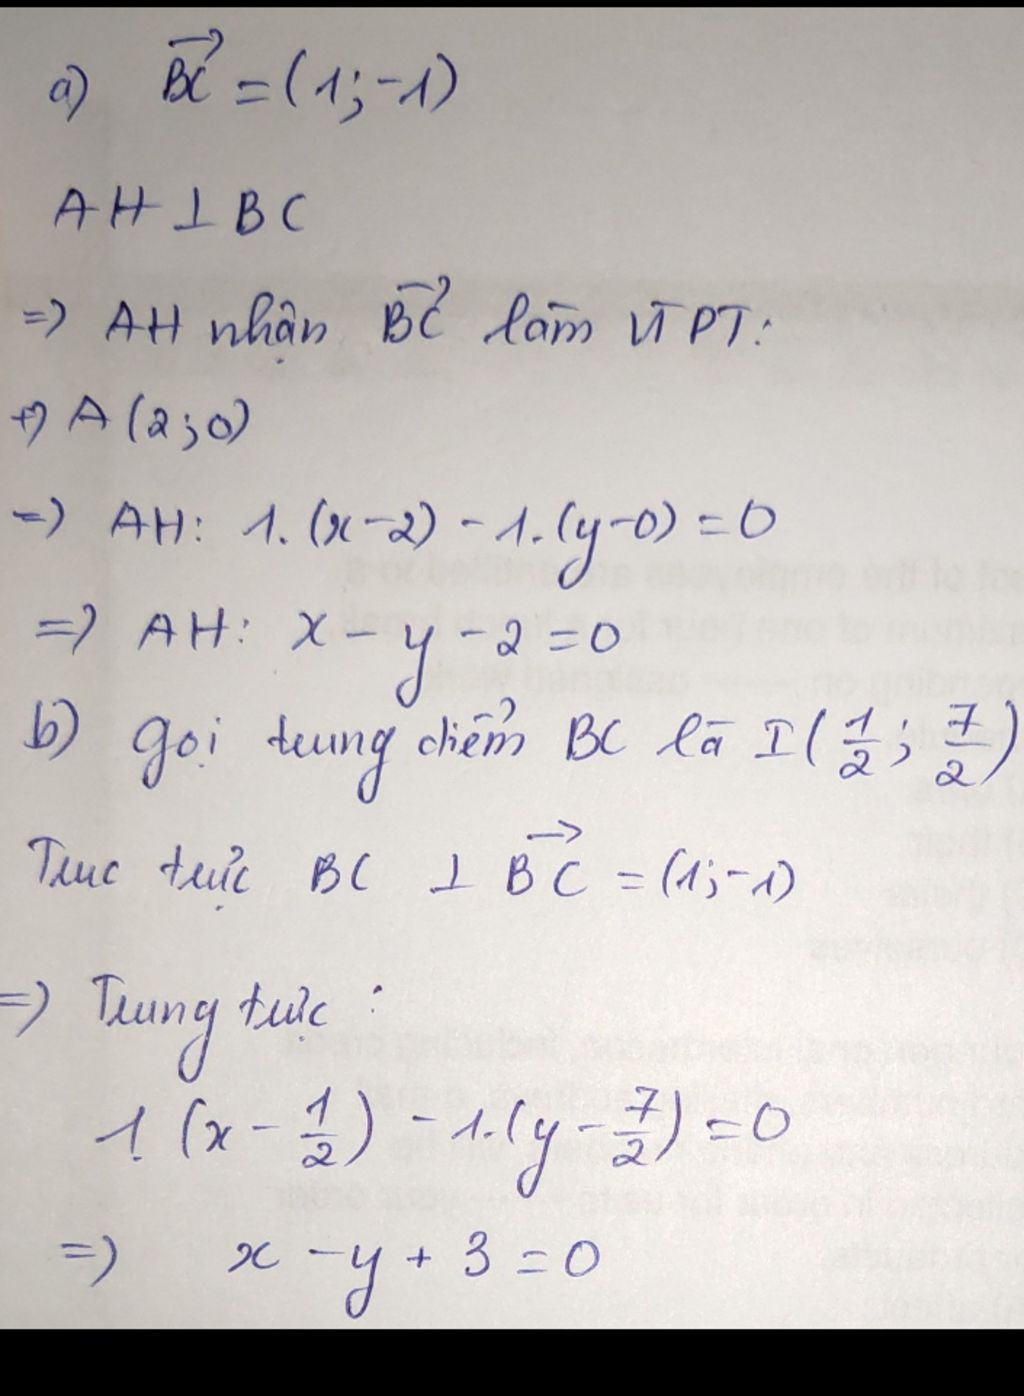 a) $\overrightarrow{BC}$ = (1; -1)
AH ⊥ BC
=> AH nhận $\overrightarrow{BC}$ làm VTPT:
+) A(2; 0)
=> AH: 1.(x-2) - 1.(y-0) = 0
=> AH: x - y - 2 = 0
b) gọi trung điểm BC là I($\frac{1}{2}$; $\frac{7}{2}$)
Truc trực BC ⊥ $\overrightarrow{BC}$ = (1; -1)
=> Trung trực :
1.(x - $\frac{1}{2}$) - 1.(y - $\frac{7}{2}$) = 0
=> x - y + 3 = 0